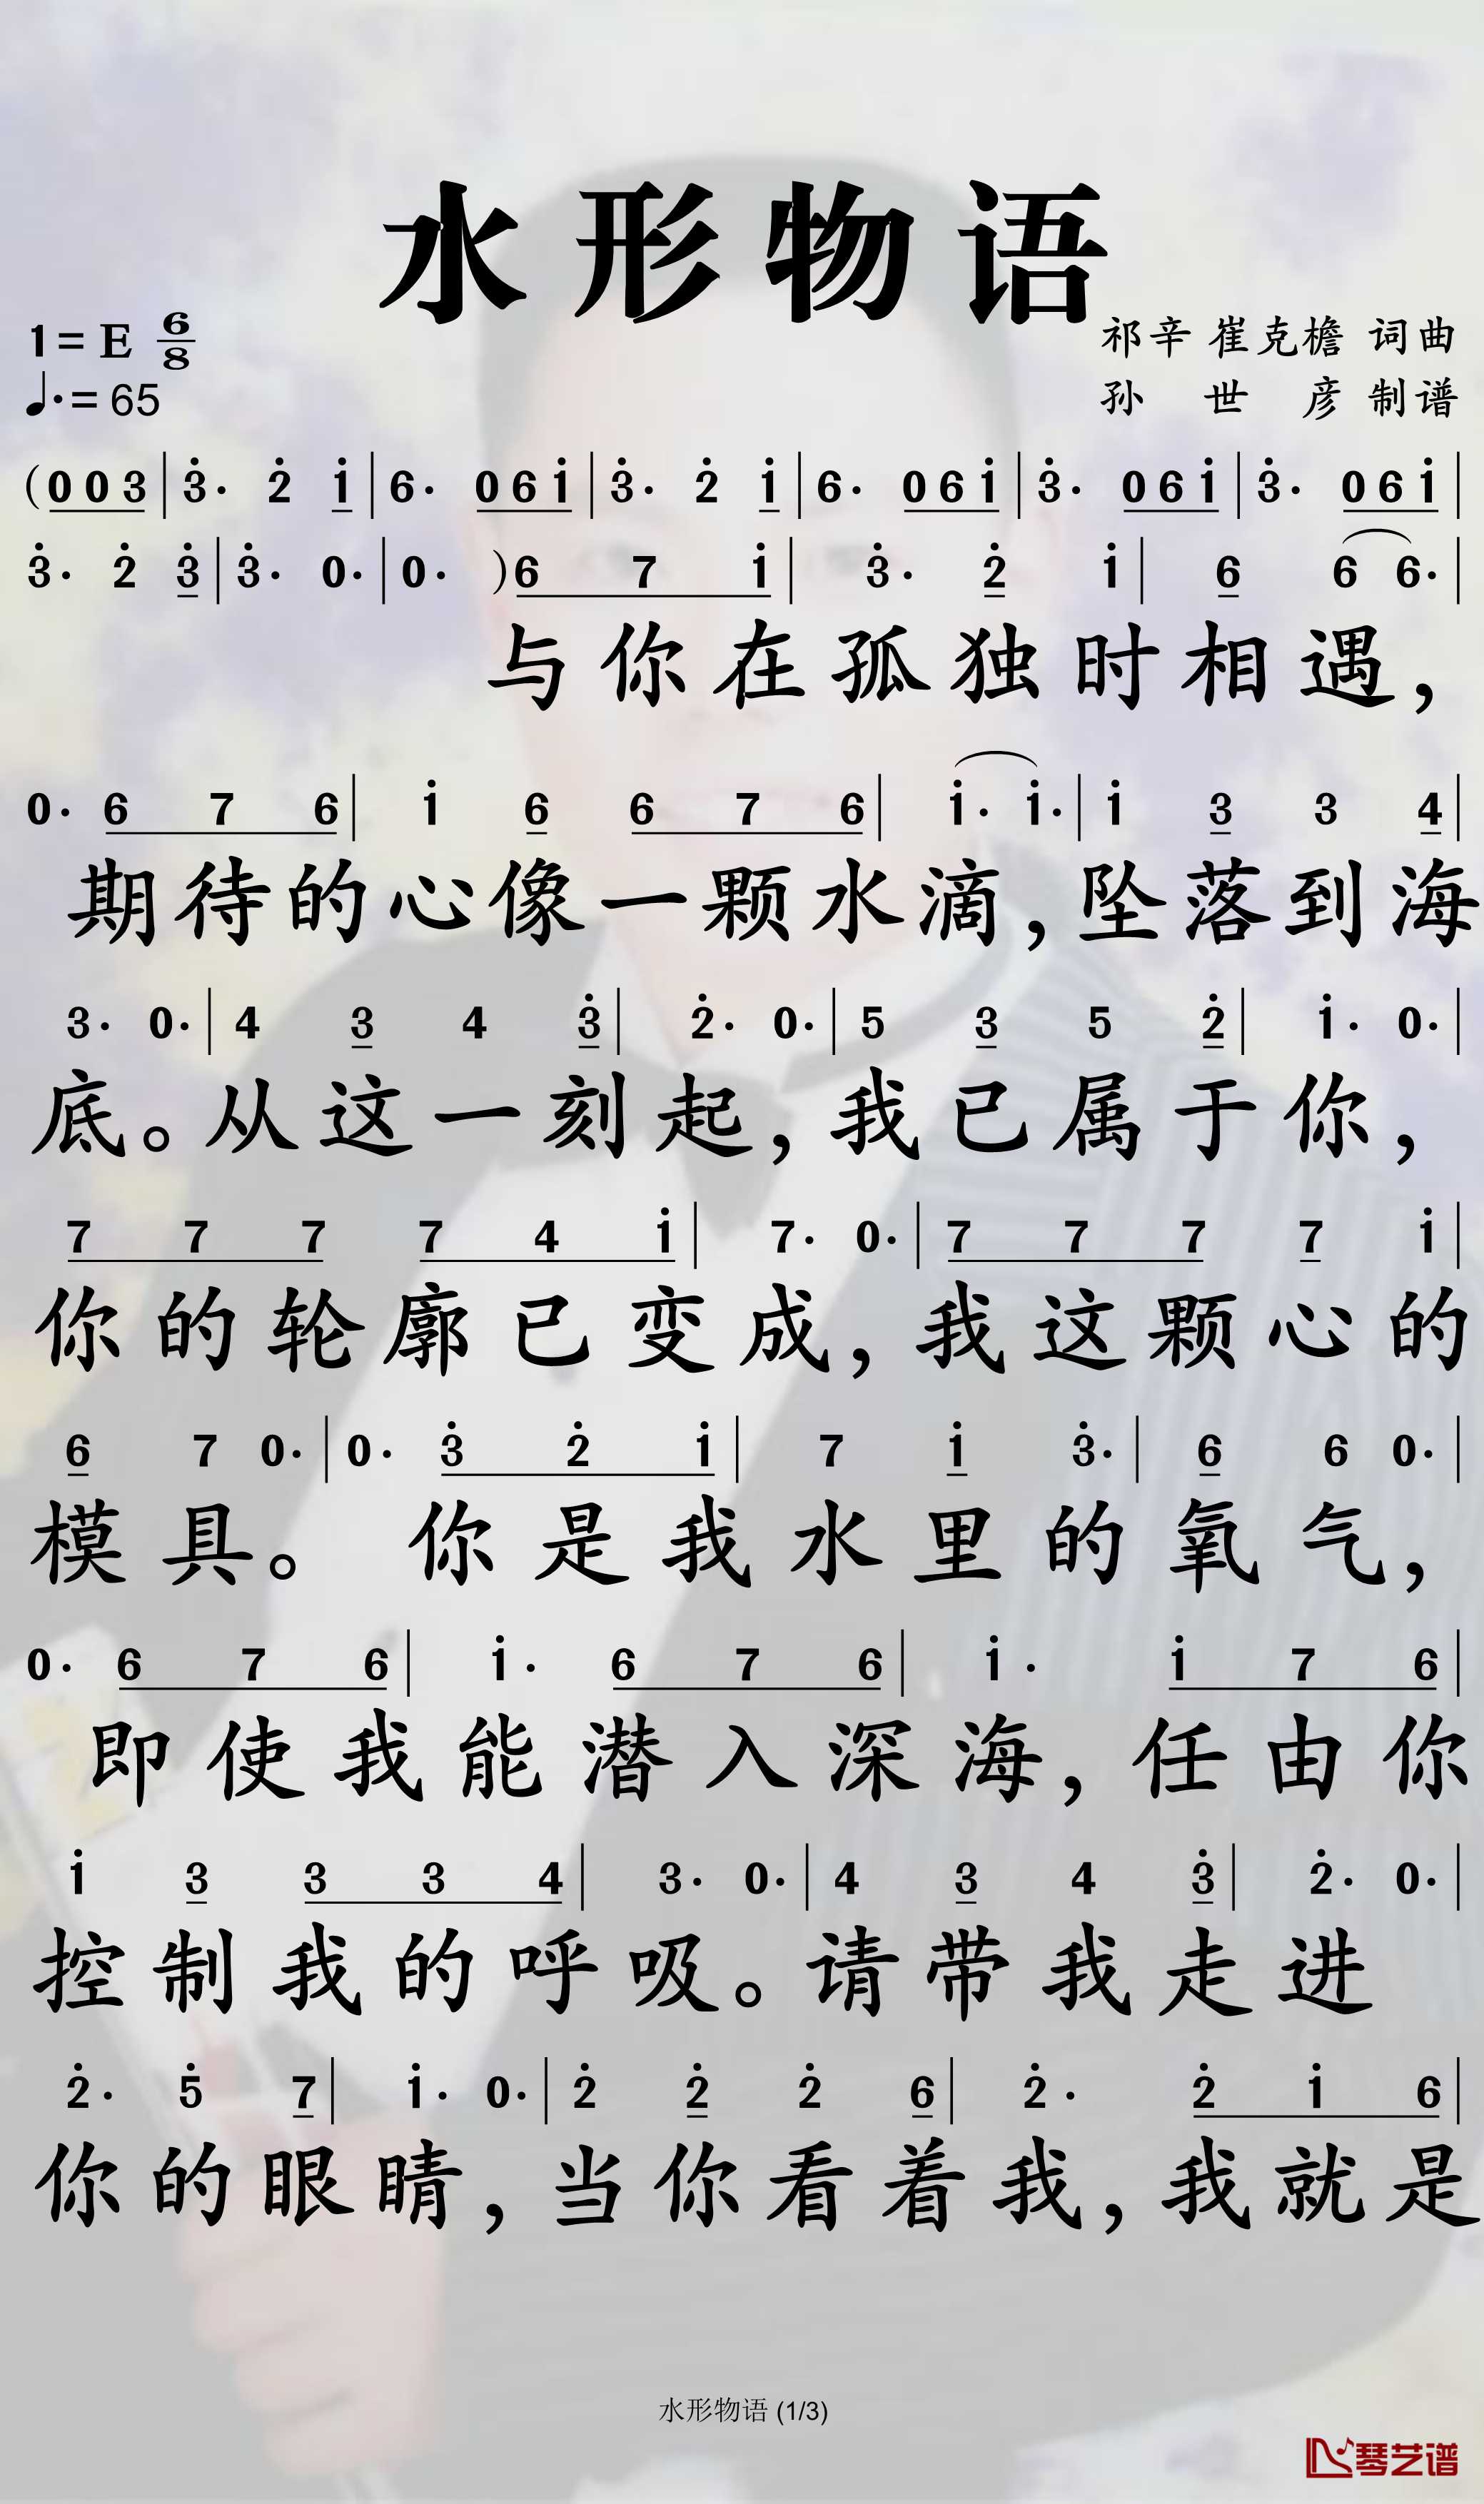 水形物语
1=E 6/8
♩.=65
祁辛 崔克檐 词曲
孙世彦 制谱
(0 0 3 | 3̇· 2̇ i̇ | 6· 0 6 i̇ | 3̇· 2̇ i̇ | 6· 0 6 i̇ | 3̇· 0 6 i̇ | 3̇· 0 6 i̇ |
3̇· 2̇ 3̇ | 3̇· 0· | 0· )6 7 i̇ | 3̇· 2̇ i̇ | 6 6 6· |
与你在孤独时相遇，
0· 6 7 6 | i̇ 6 6 7 6 | i̇· i̇· | i̇ 3 3 4 |
期待的心像一颗水滴，坠落到海
3· 0· | 4 3 4 3̇ | 2̇· 0· | 5 3 5 2̇ | i̇· 0· |
底。从这一刻起，我已属于你，
7 7 7 7 4 i̇ | 7· 0· | 7 7 7 7 i̇ |
你的轮廓已变成，我这颗心的
6 7 0· | 0· 3̇ 2̇ i̇ | 7 i̇ 3̇· | 6 6 0· |
模具。你是我水里的氧气，
0· 6 7 6 | i̇· 6 7 6 | i̇· i̇ 7 6 |
即使我能潜入深海，任由你
i̇ 3 3 3 4 | 3· 0· | 4 3 4 3̇ | 2̇· 0· |
控制我的呼吸。请带我走进
2̇· 5̇ 7 | i̇· 0· | 2̇ 2̇ 2̇ 6 | 2̇· 2̇ i̇ 6 |
你的眼睛，当你看着我，我就是
水形物语 (1/3)
琴艺谱